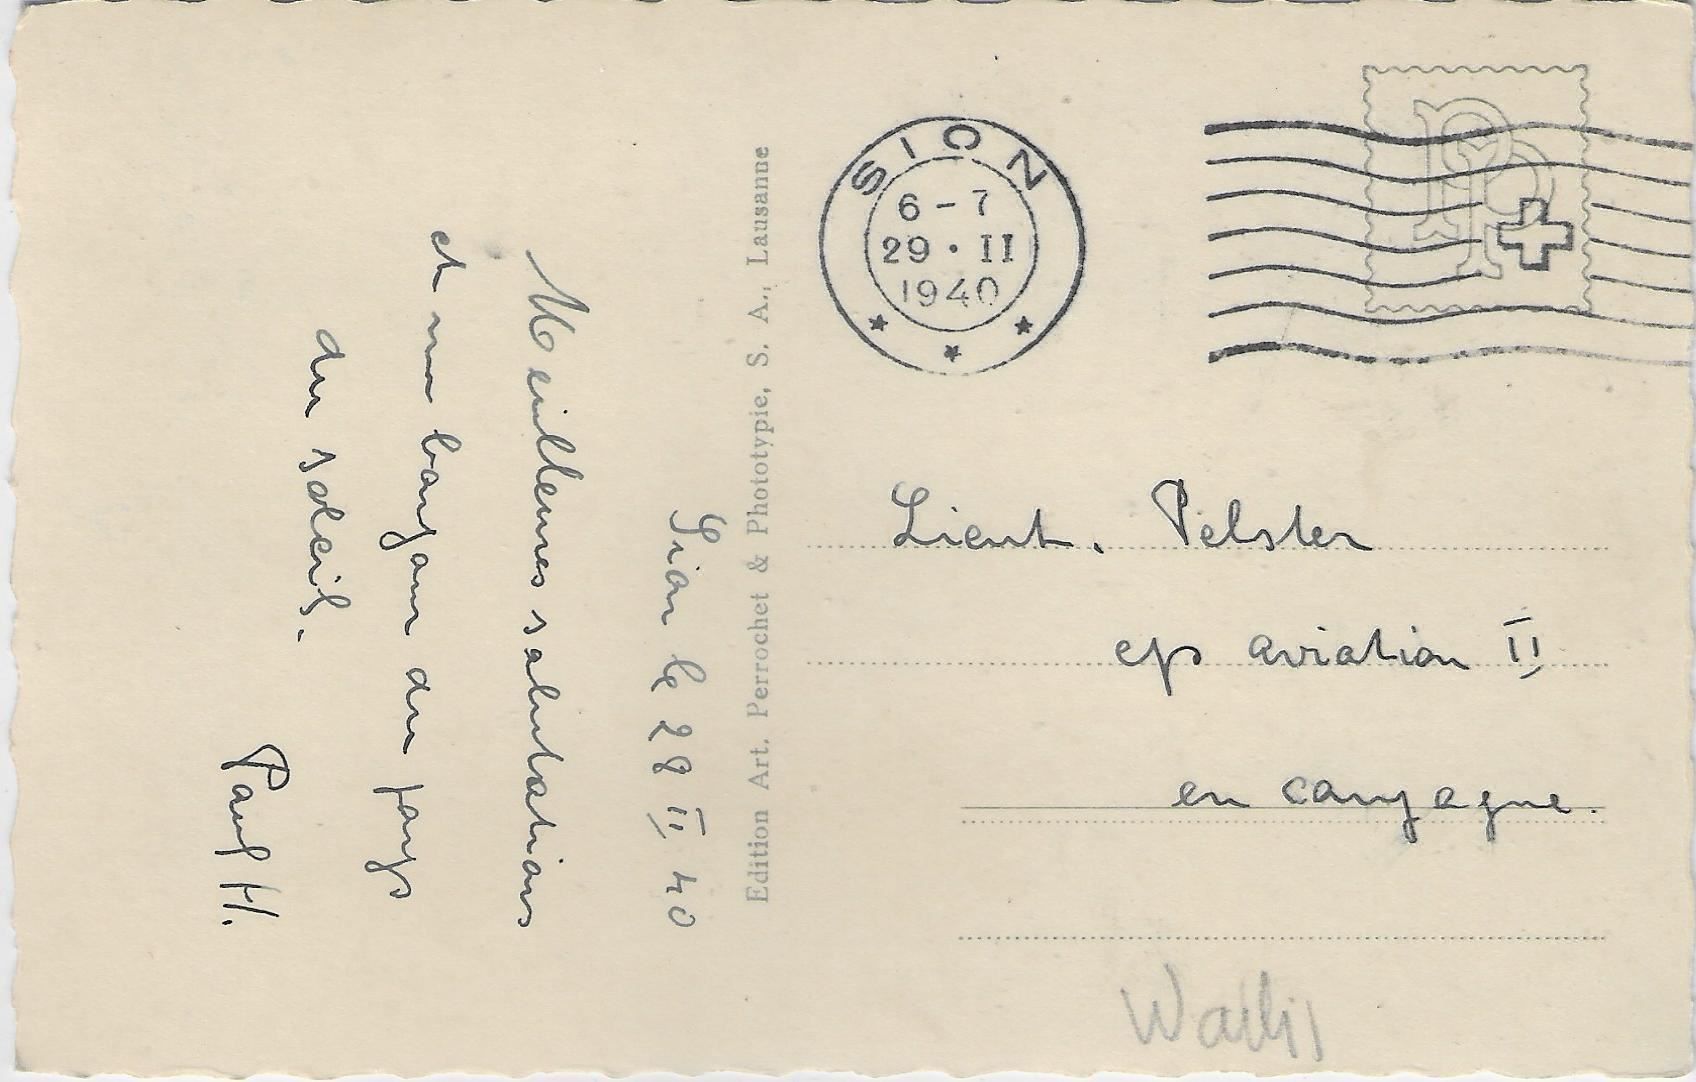 Sion le 28 II 40
Meilleures salutations
et un bonjour du pays
du soleil.
Paul H.
Edition Art. Perrochet & Phototypie, S. A., Lausanne
SION
6-7
29 • II
1940
Lieut. Pelster
cp aviation II
en campagne.
Wallis